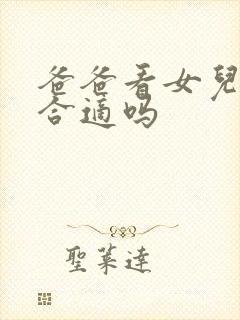 爸爸看女兒
合適吗
聖菜達